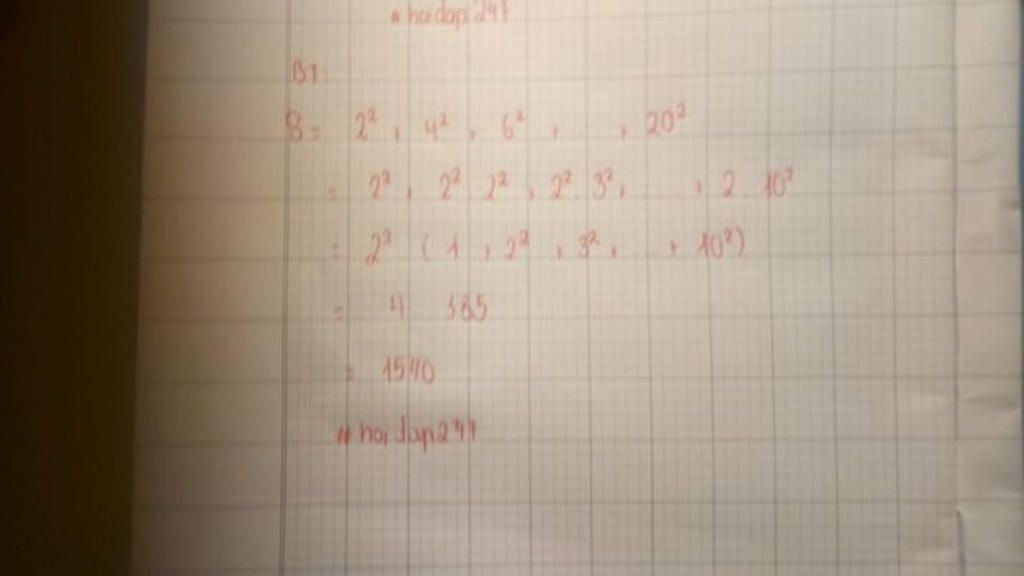 # hoidap247
B7
S = 2² + 4² + 6² + ... + 20²
= 2² + 2² . 2² + 2² . 3² + ... + 2 . 10²
= 2² ( 1 + 2² + 3² + ... + 10² )
= 4 . 385
= 1540
# hoidap247